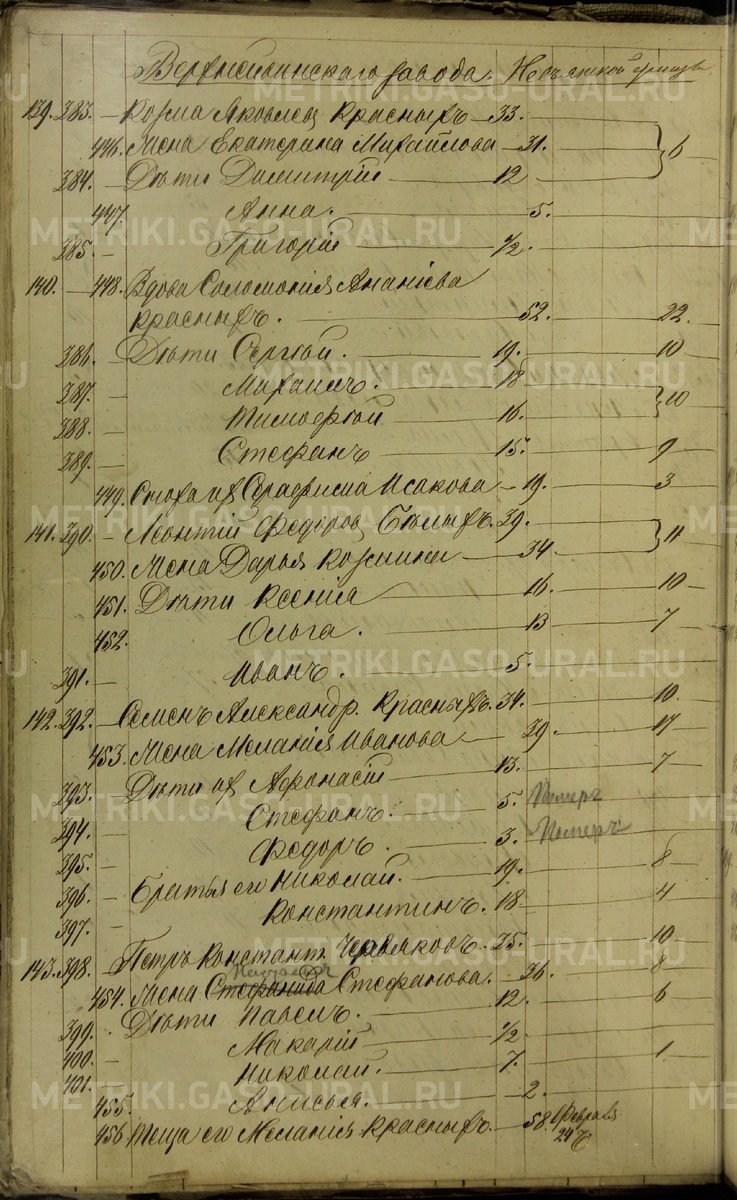 Верхнейвинскаго завода.
139. 383. — Козма Яковлевъ Красныхъ — 33.
446. Жена Екатерина Михайлова — 31. 6
384. — Дѣти Димитрій — 12
447. Анна. — 5.
385. — Григорій — 1/2.
140. — 448. Вдова Соломонія Ананіева
Красныхъ. — 52. — 22.
386. — Дѣти Сергѣй. — 19. — 10
387. — Михаилъ. — 18
388. — Тимофѣй — 16. 10
389. — Стефанъ — 15. — 9
449. Сноха их Серафима Исакова — 19. — 3
141. 390. — Леонтій Федоров Бѣлыхъ. 39.
450. Жена Дарья Козмина — 34. 11
451. Дѣти Ксенія — 16. — 10
452. Ольга. — 13 — 7
391. — Иванъ. — 5.
142. 392. — Семенъ Александр. Красныхъ. 34. — 10
453. Жена Меланія Иванова — 39. — 17
393. Дѣти их Афонасій — 13. — 7
394. — Стефанъ. — 5. Померъ
395. — Федоръ. — 3. Померъ
396. — Братья его Николай. — 19. — 8
397. — Константинъ. — 18 — 4
143. 398. — Петръ Констант. Червяковъ. 25. — 10
454. Жена Стефанида Стефанова. — 26. — 8
399. — Дѣти Павелъ. — 12. — 6
400. — Макарій — 1/2
401. — Николай. — 7. — 1
455. Анисья. — 2.
456. Теща его Меланія Красныхъ. — 58. Февраля
24
METRIKI.GASO-URAL.RU